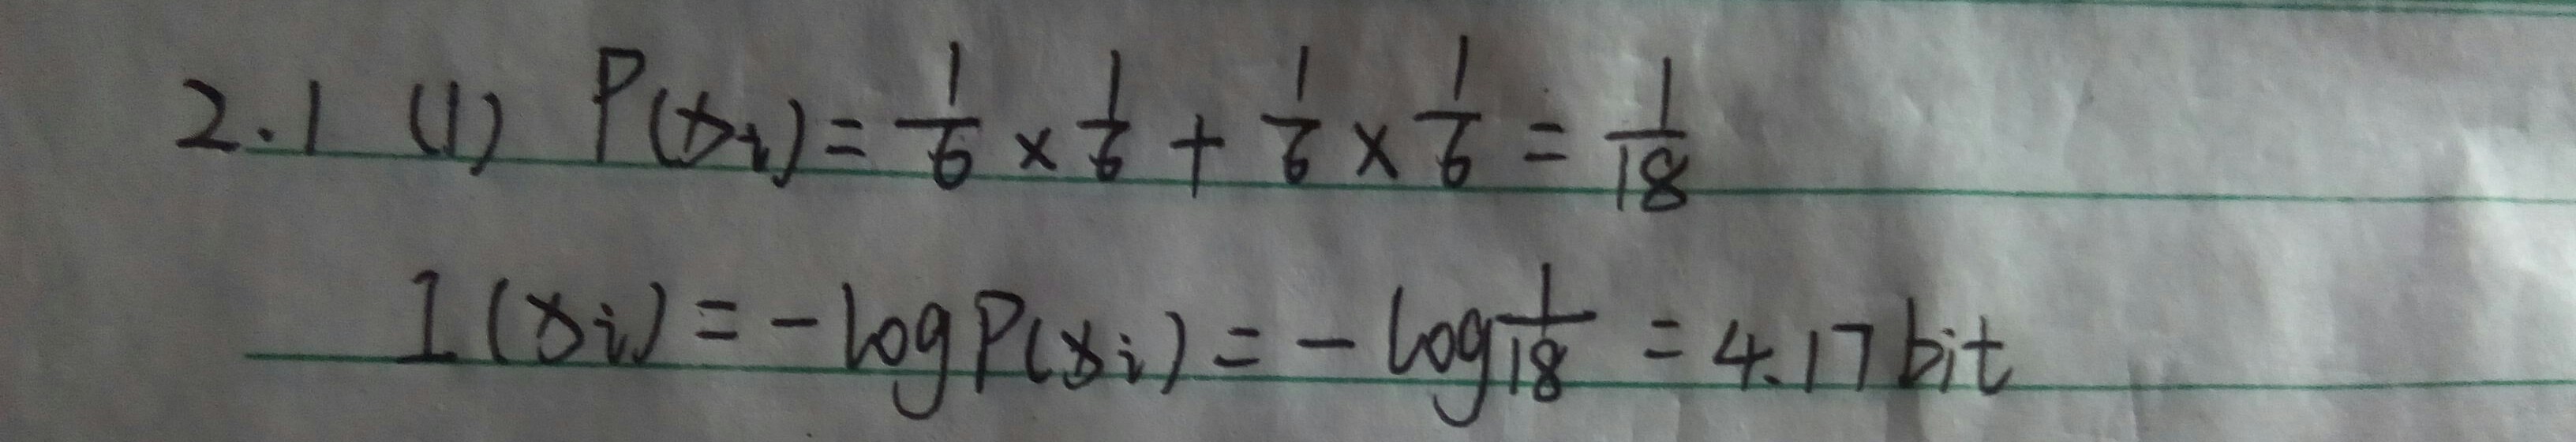 2.1 (1) P(xi) = 1/6 × 1/6 + 1/6 × 1/6 = 1/18
I(xi) = -log P(xi) = -log 1/18 = 4.17 bit